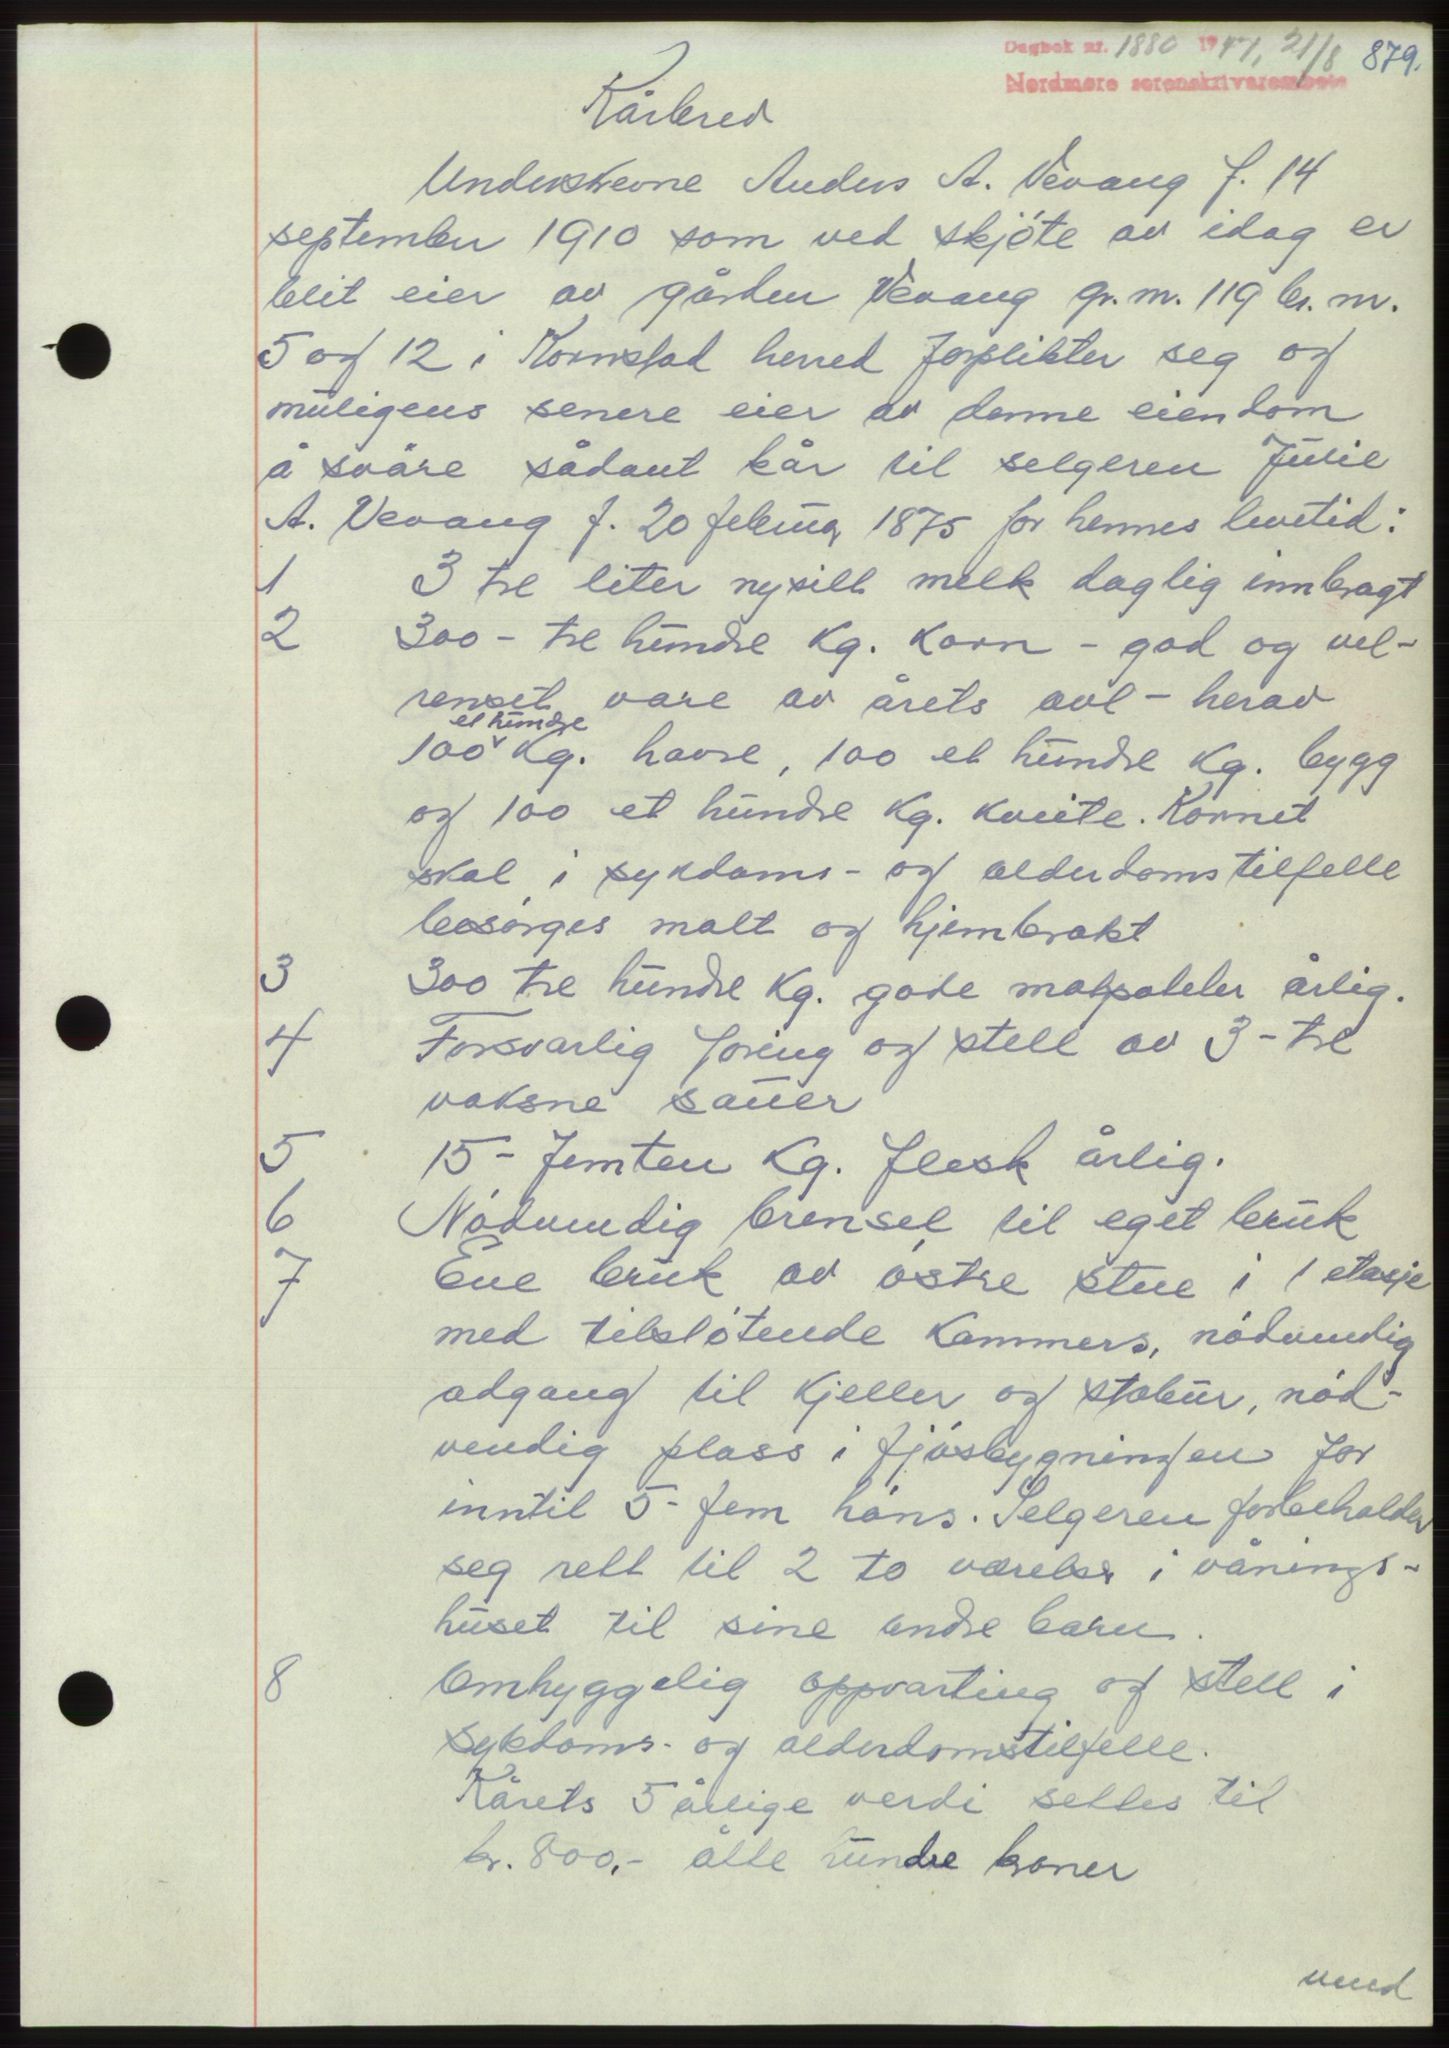 Dagbok nr. 1880 1947, 21/8 879.
Nordmøre sorenskrivarembete
Kårbrev
Underskrevne Anders A. Vevang f. 14
september 1910 som ved skjøte av idag er
blit eier av gården Vevang gr. nr. 119 br. nr.
5 og 12 i Kornstad herred forplikter seg og
muligens senere eier av denne eiendom
å svare sådant kår til selgeren Julie
A. Vevang f. 20 februar 1875 for hennes levetid:
1 3 tre liter nysilt melk daglig innbragt
2 300 - tre hundre Kg. korn - god og vel-
renset vare av årets avl - herav
100 et hundre Kg. havre, 100 et hundre Kg. bygg
og 100 et hundre Kg. kveite. Kornet
skal i sykdoms- og alderdomstilfelle
besørges malt og hjembrakt
3 300 tre hundre Kg. gode matpoteter årlig.
4 Forsvarlig foring og stell av 3 - tre
voksne sauer
5 15 - femten Kg. flesk årlig.
6 Nødvendig brensel til eget bruk
7 Ene bruk av østre stue i 1 etasje
med tilstøtende kammers, nødvendig
adgang til kjeller og stabur, nød-
vendig plass i fjøsbygningen for
inntil 5 - fem høns. Selgeren forbeholder
seg rett til 2 to værelser i vånings-
huset til sine andre barn.
8 Omhyggelig oppvarting og stell i
sykdoms- og alderdomstilfelle.
Kårets 5 årlige verdi settes til
kr. 800,- åtte hundre kroner
vend